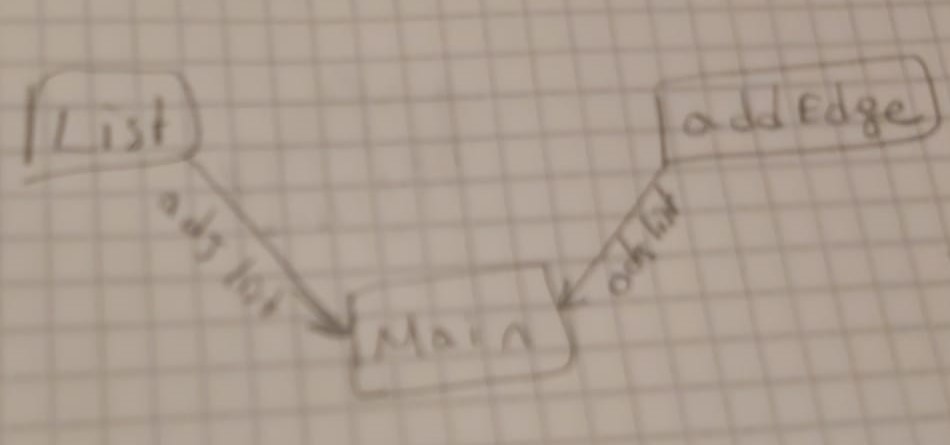 List
addEdge
adj list
adj list
Main